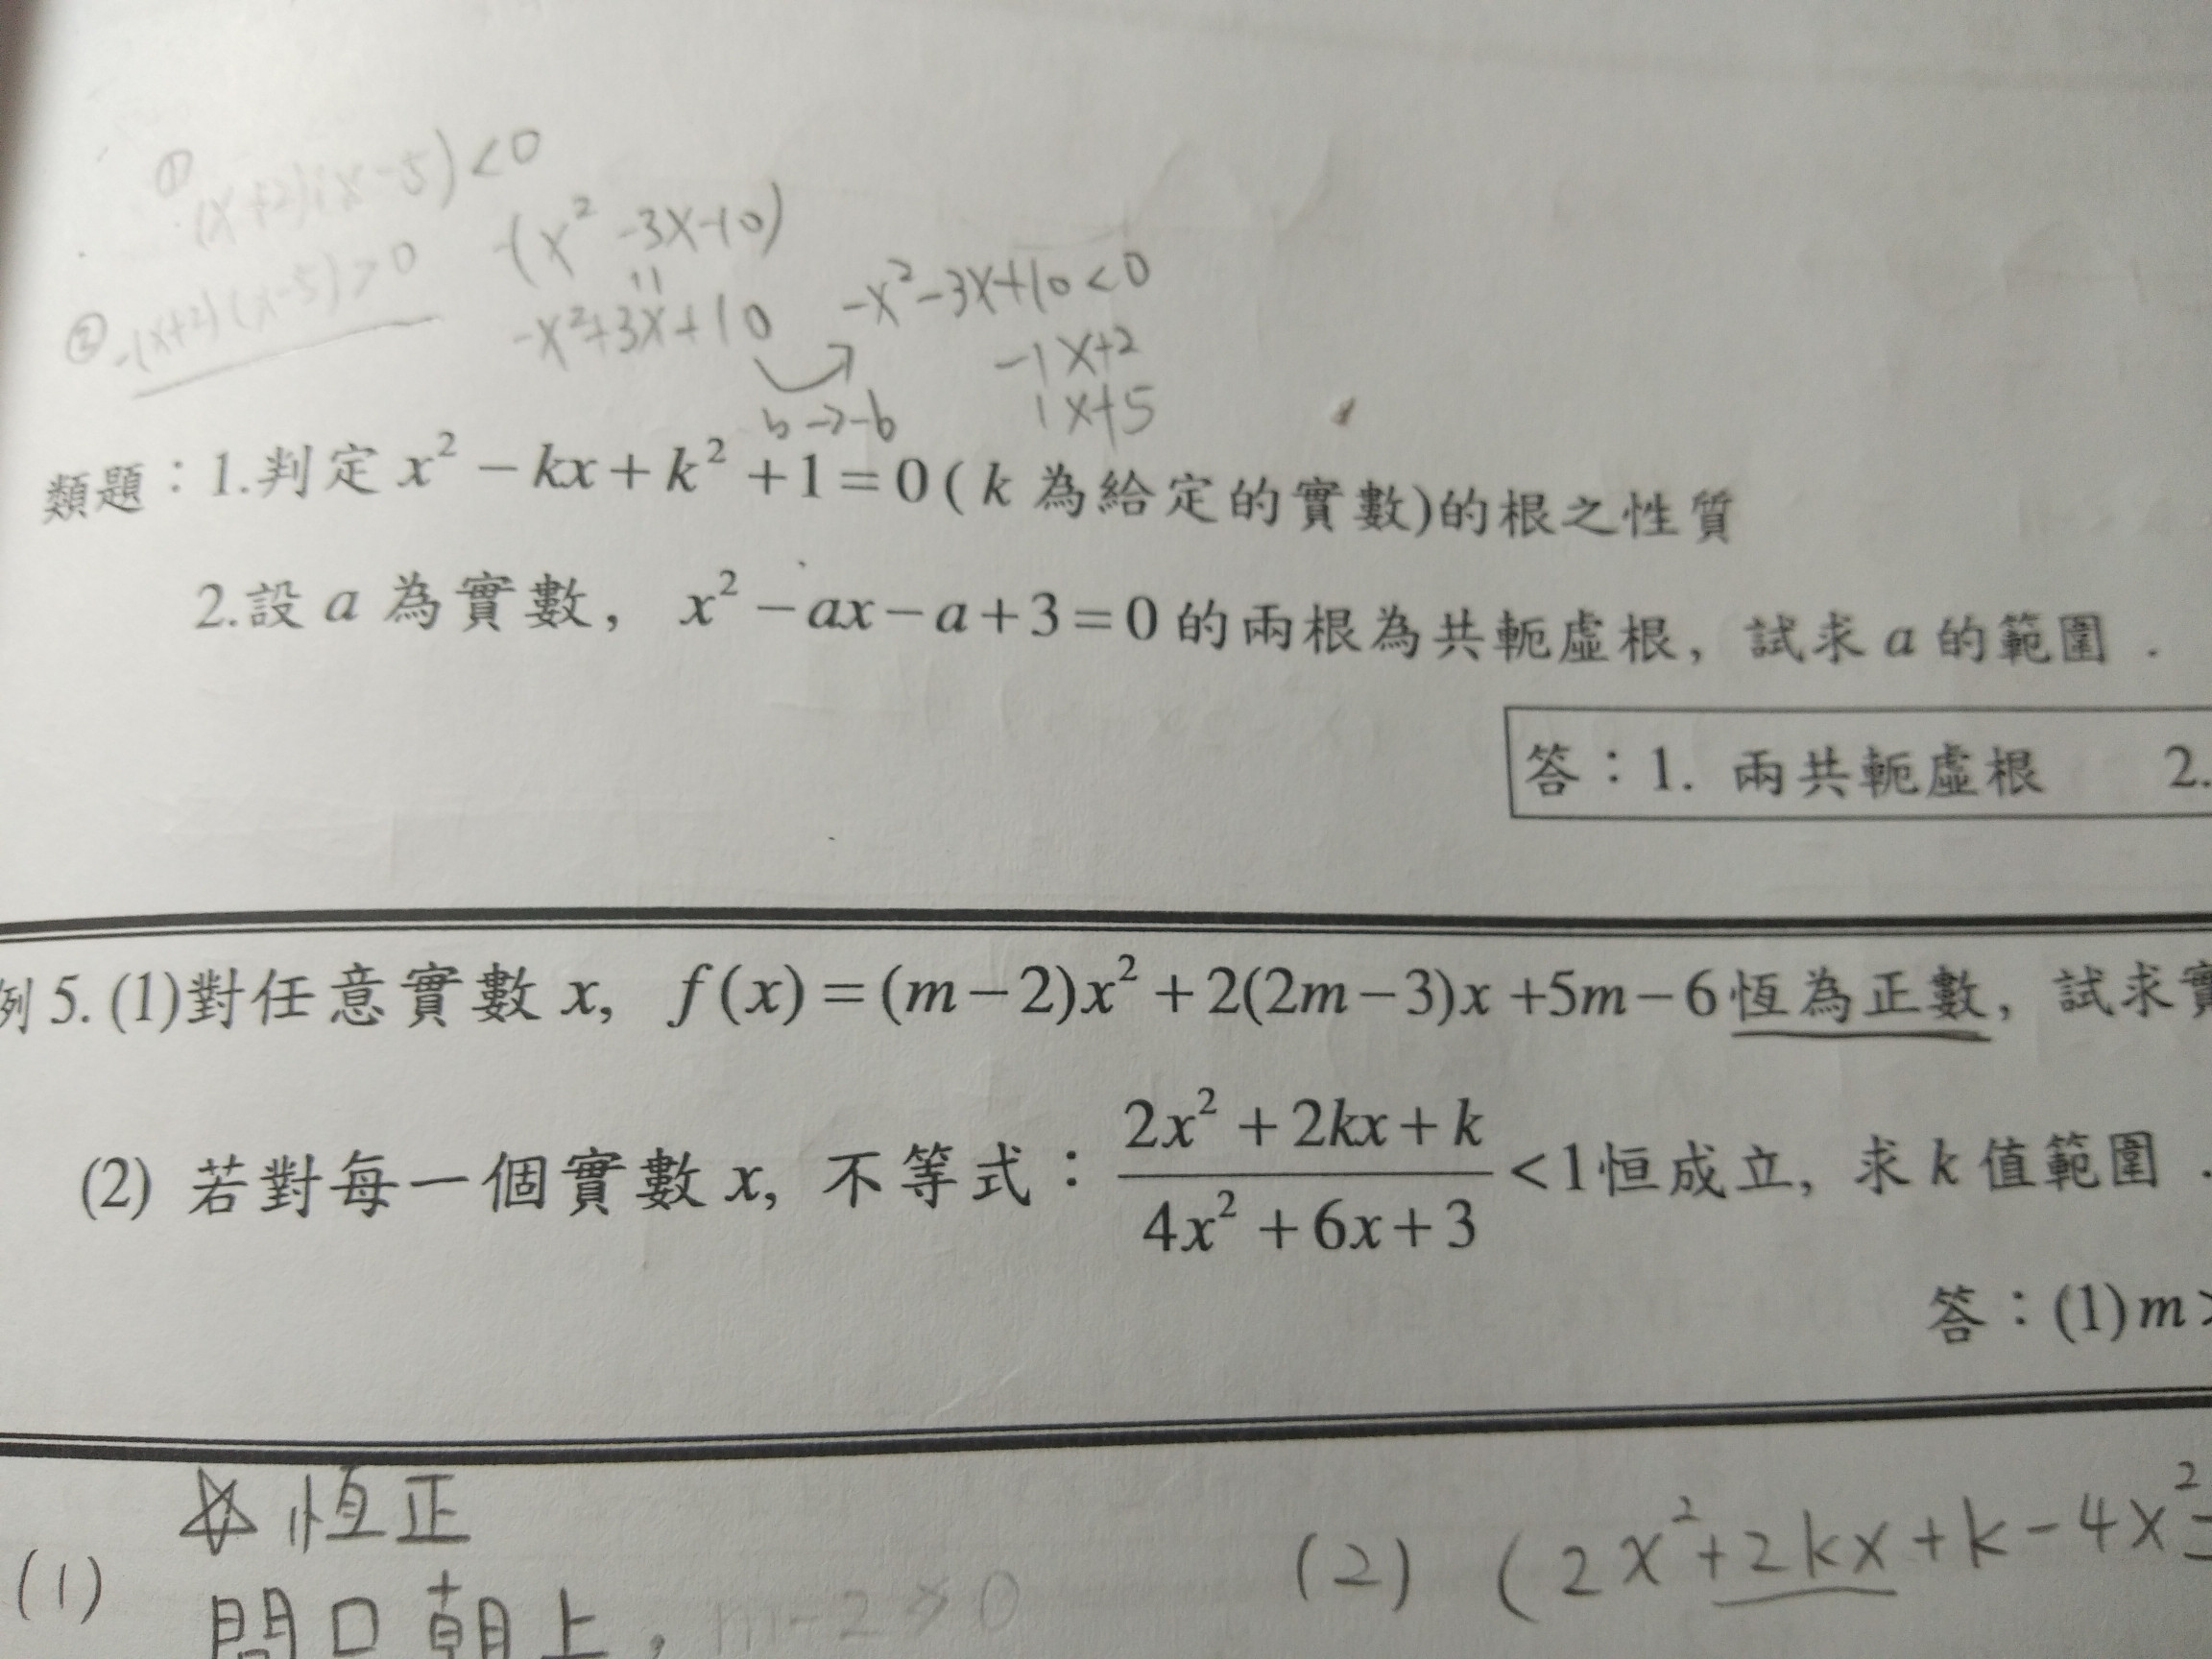 ① (x+2)(x-5)<0
② -(x+2)(x-5)>0
-(x²-3x-10)
=
-x²+3x+10
b→-b
-x²-3x+10<0
-1 x+2
1 x+5
類題：1.判定 x²-kx+k²+1=0(k 為給定的實數)的根之性質
2.設 a 為實數，x²-ax-a+3=0 的兩根為共軛虛根，試求 a 的範圍．
答：1. 兩共軛虛根 2.
例 5. (1)對任意實數 x, f(x)=(m-2)x²+2(2m-3)x+5m-6 恆為正數，試求實
(2) 若對每一個實數 x, 不等式：(2x²+2kx+k)/(4x²+6x+3)<1 恒成立, 求 k 值範圍．
答：(1) m>
☆ 恆正
(1) 開口朝上, m-2>0
(2) (2x²+2kx+k-4x²-